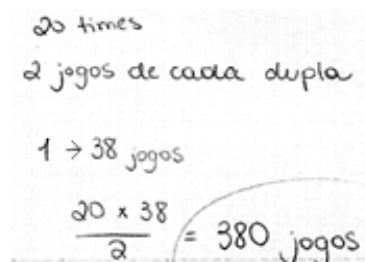 20 times
2 jogos de cada dupla
1 → 38 jogos
20 x 38
2
= 380 jogos